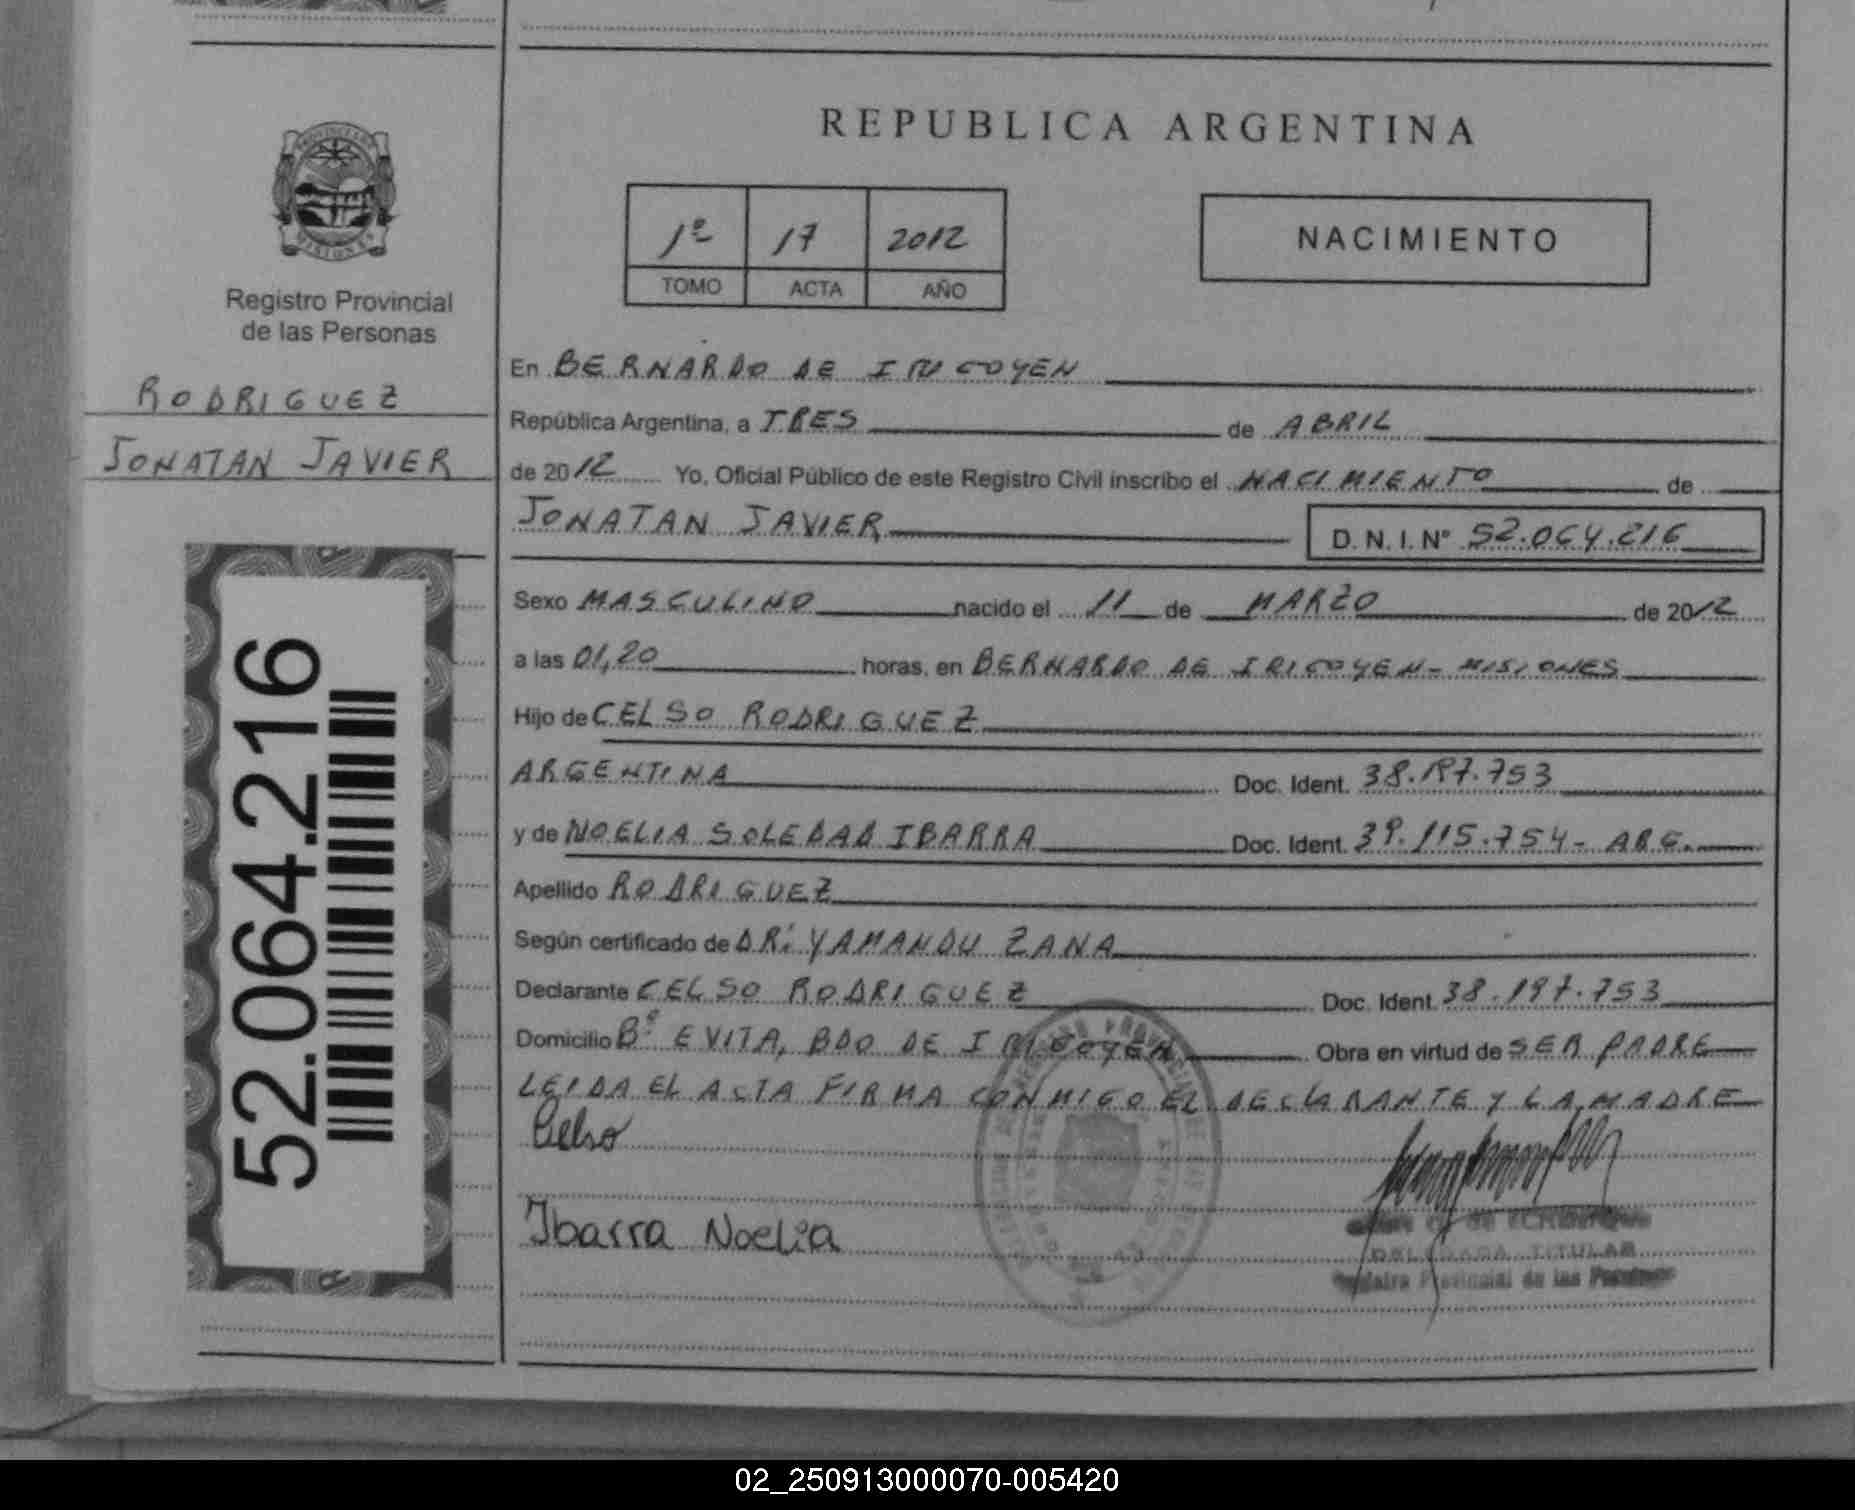 REPUBLICA ARGENTINA
1º 17 2012
TOMO ACTA AÑO
NACIMIENTO
Registro Provincial
de las Personas
RODRIGUEZ
JONATAN JAVIER
52.064.216
En BERNARDO DE IRIGOYEN
República Argentina, a TRES de ABRIL
de 2012 Yo, Oficial Público de este Registro Civil inscribo el NACIMIENTO de
JONATAN JAVIER D. N. I. Nº 52.064.216
Sexo MASCULINO nacido el 11 de MARZO de 2012
a las 01,20 horas, en BERNARDO DE IRIGOYEN - MISIONES
Hijo de CELSO RODRIGUEZ
ARGENTINA Doc. Ident. 38.197.753
y de NOELIA SOLEDAD IBARRA Doc. Ident. 39.115.754 - ARG.
Apellido RODRIGUEZ
Según certificado de DR: YAMANDU ZANA
Declarante CELSO RODRIGUEZ Doc. Ident. 38.197.753
Domicilio Bº EVITA, BDO DE IRIGOYEN Obra en virtud de SER PADRE
LEIDA EL ACTA FIRMA CONMIGO EL DECLARANTE Y LA MADRE
Celso
Ibarra Noelia
DELEGADA TITULAR
Registro Provincial de las Personas
02_250913000070-005420